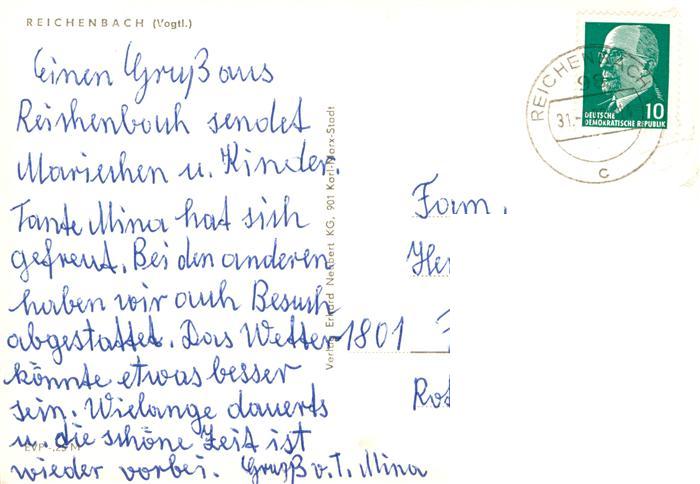 REICHENBACH (Vogtl.)
Einen Gruß aus
Reichenbach sendet
Mariechen u. Kinder.
Tante Mina hat sich
gefreut. Bei den anderen
haben wir auch Besuch
abgestattet. Das Wetter
könnte etwas besser
sein. Wielange dauerts
u. die schöne Zeit ist
wieder vorbei. Gruß v. T. Mina
EVP -,25 M
Verlag Erhard Neubert KG, 901 Karl-Marx-Stadt
REICHENBACH
98
31.
c
10
DEUTSCHE
DEMOKRATISCHE REPUBLIK
Fam.
1801